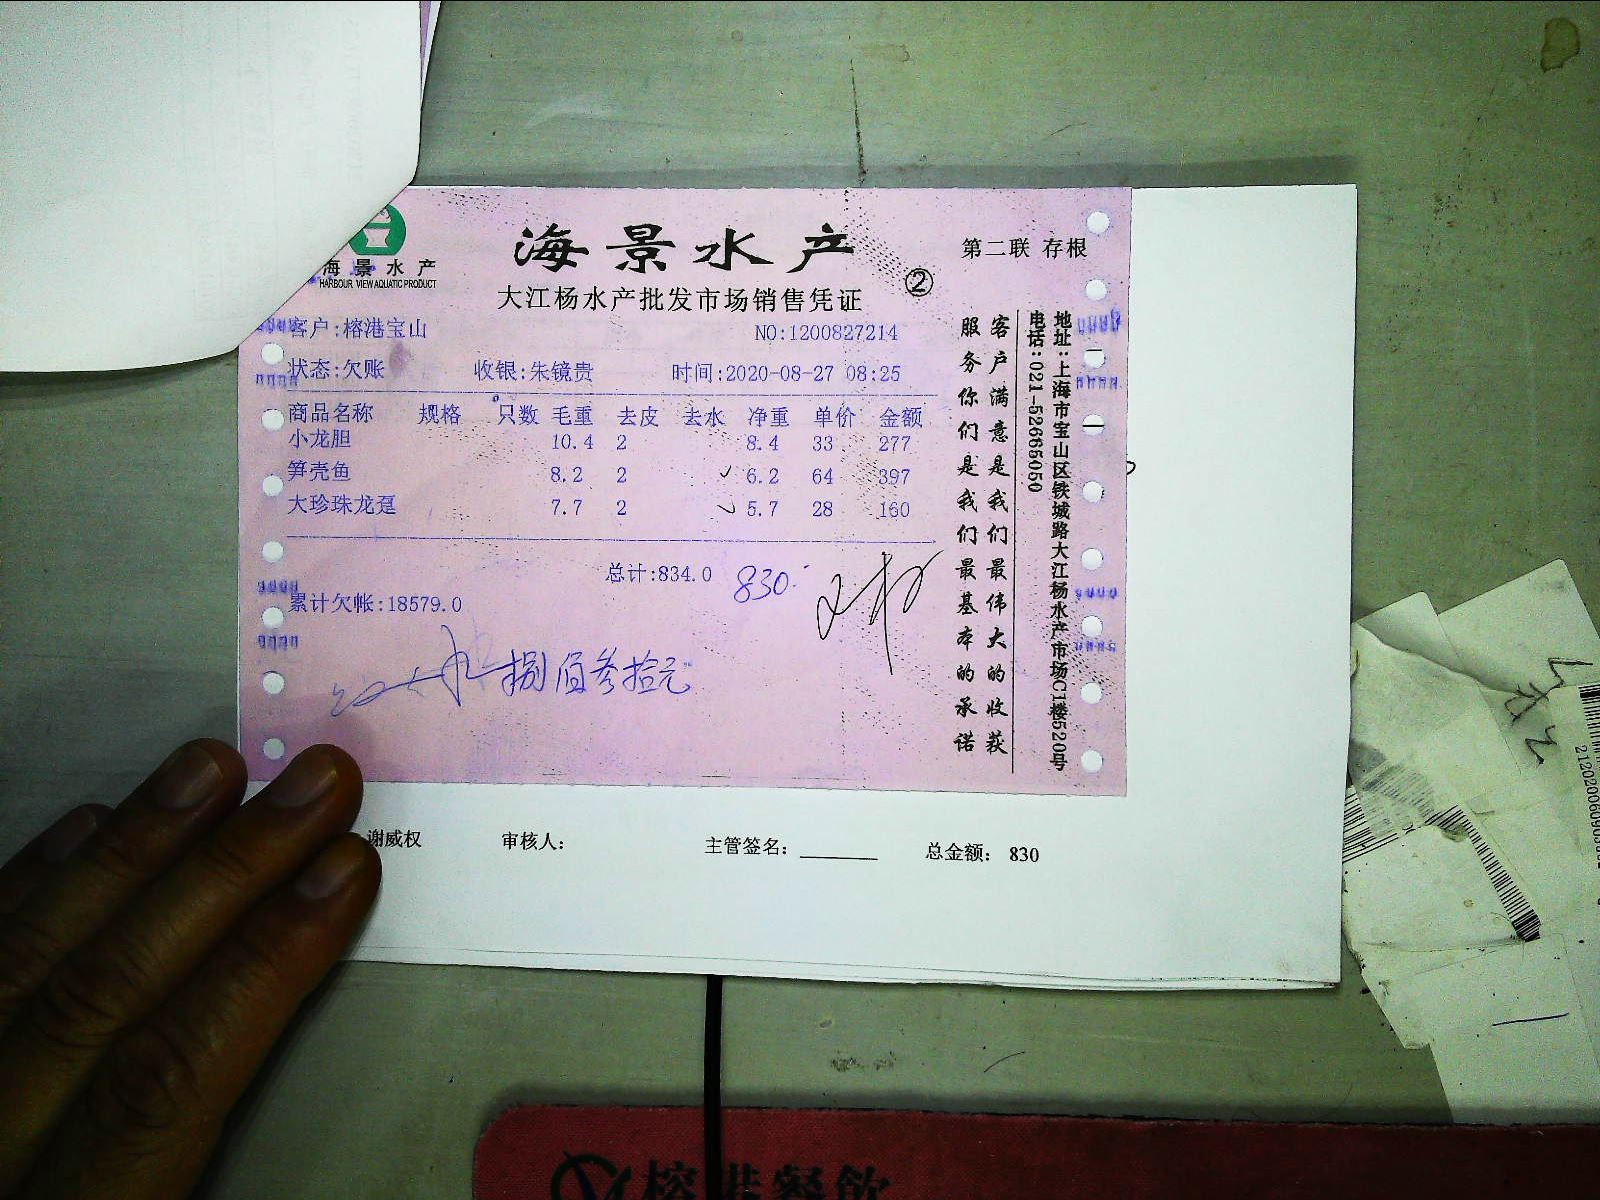 海景水产
HARBOUR VIEW AQUATIC PRODUCT
海景水产
大江杨水产批发市场销售凭证
②
第二联 存根
客户:榕港宝山 NO:1200827214
状态:欠账 收银:朱镜贵 时间:2020-08-27 08:25
商品名称 规格 只数 毛重 去皮 去水 净重 单价 金额
小龙胆 10.4 2 8.4 33 277
笋壳鱼 8.2 2 6.2 64 397
大珍珠龙趸 7.7 2 5.7 28 160
总计:834.0 830.
累计欠帐:18579.0
捌佰叁拾元
客户满意是我们最伟大的收获
服务你们是我们最基本的承诺
地址:上海市宝山区铁城路大江杨水产市场C1楼520号
电话:021-52665050
谢威权 审核人: 主管签名: 总金额: 830
榕港餐飲